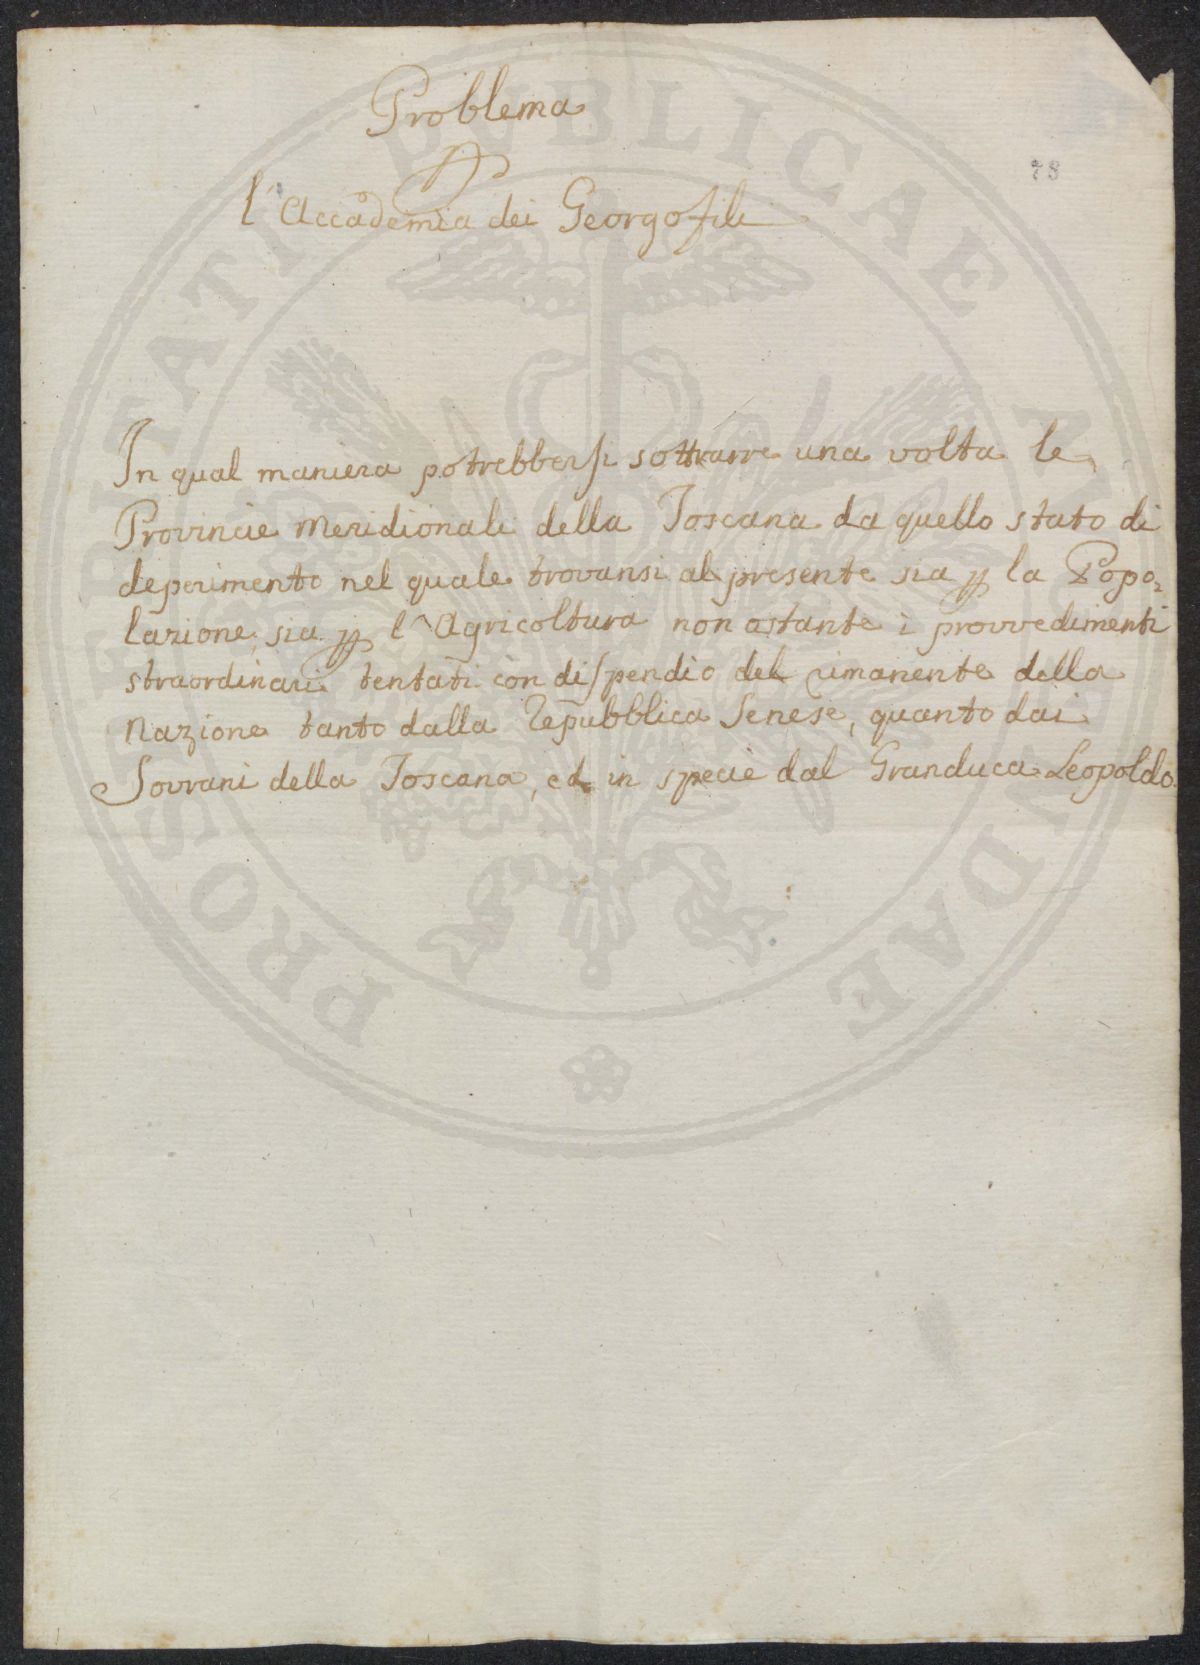 Problema
p
l'Accademia dei Georgofili
78
In qual maniera potrebbersi sottrarre una volta le
Provincie Meridionali della Toscana da quello stato di
deperimento nel quale trovansi al presente sia p la Popo=
lazione, sia p l'Agricoltura non ostante i provvedimenti
straordinari tentati con dispendio del rimanente della
Nazione tanto dalla Repubblica Senese, quanto dai
Sovrani della Toscana, ed in specie dal Granduca Leopoldo.
PROSPERITATI PVBLICAE AVGENDAE